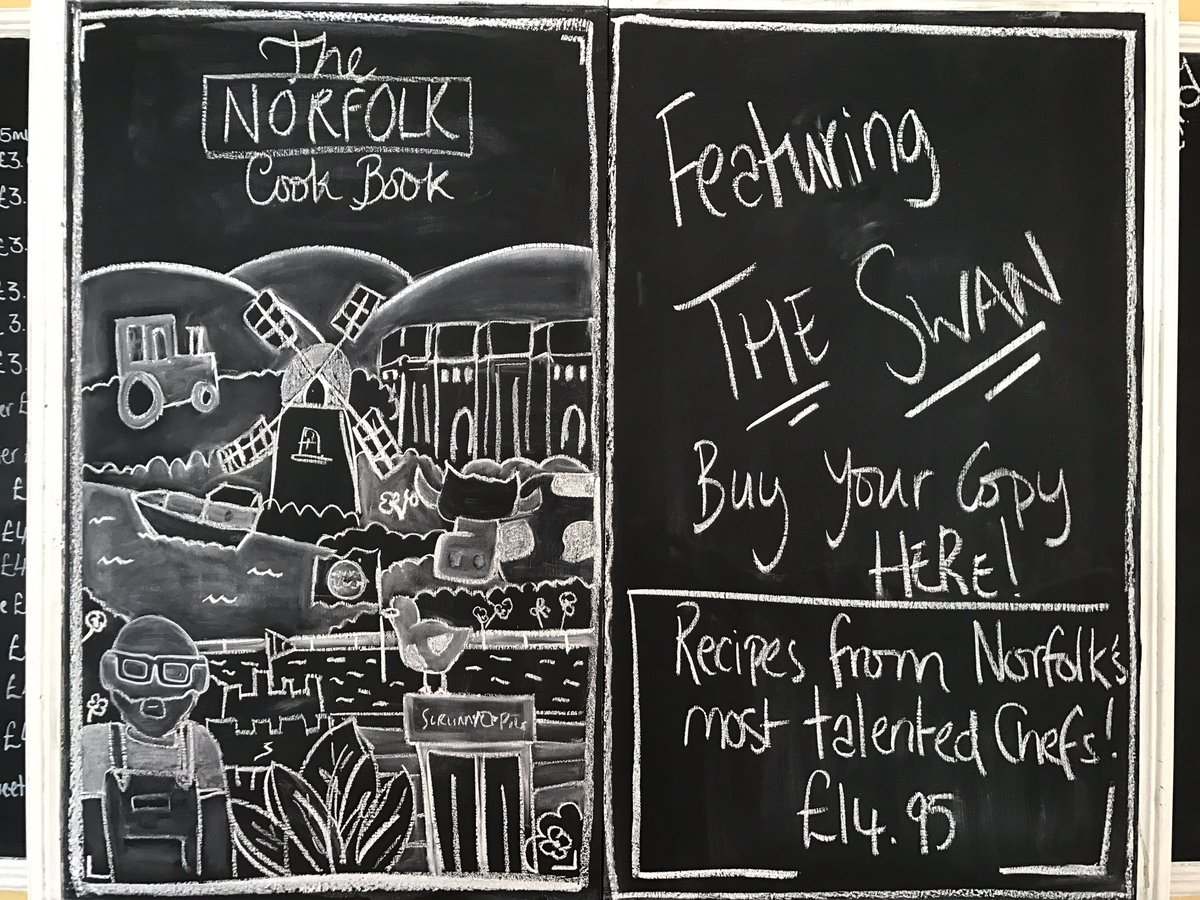 The
NORFOLK
Cook Book
Featuring
THE SWAN
Buy Your Copy
HERE!
Recipes from Norfolk's
most talented Chefs!
£14.95
5ml
£3.
£3.
£3.
£3.
£3.
£3.
£
£4
£4
£
£
£4
£4